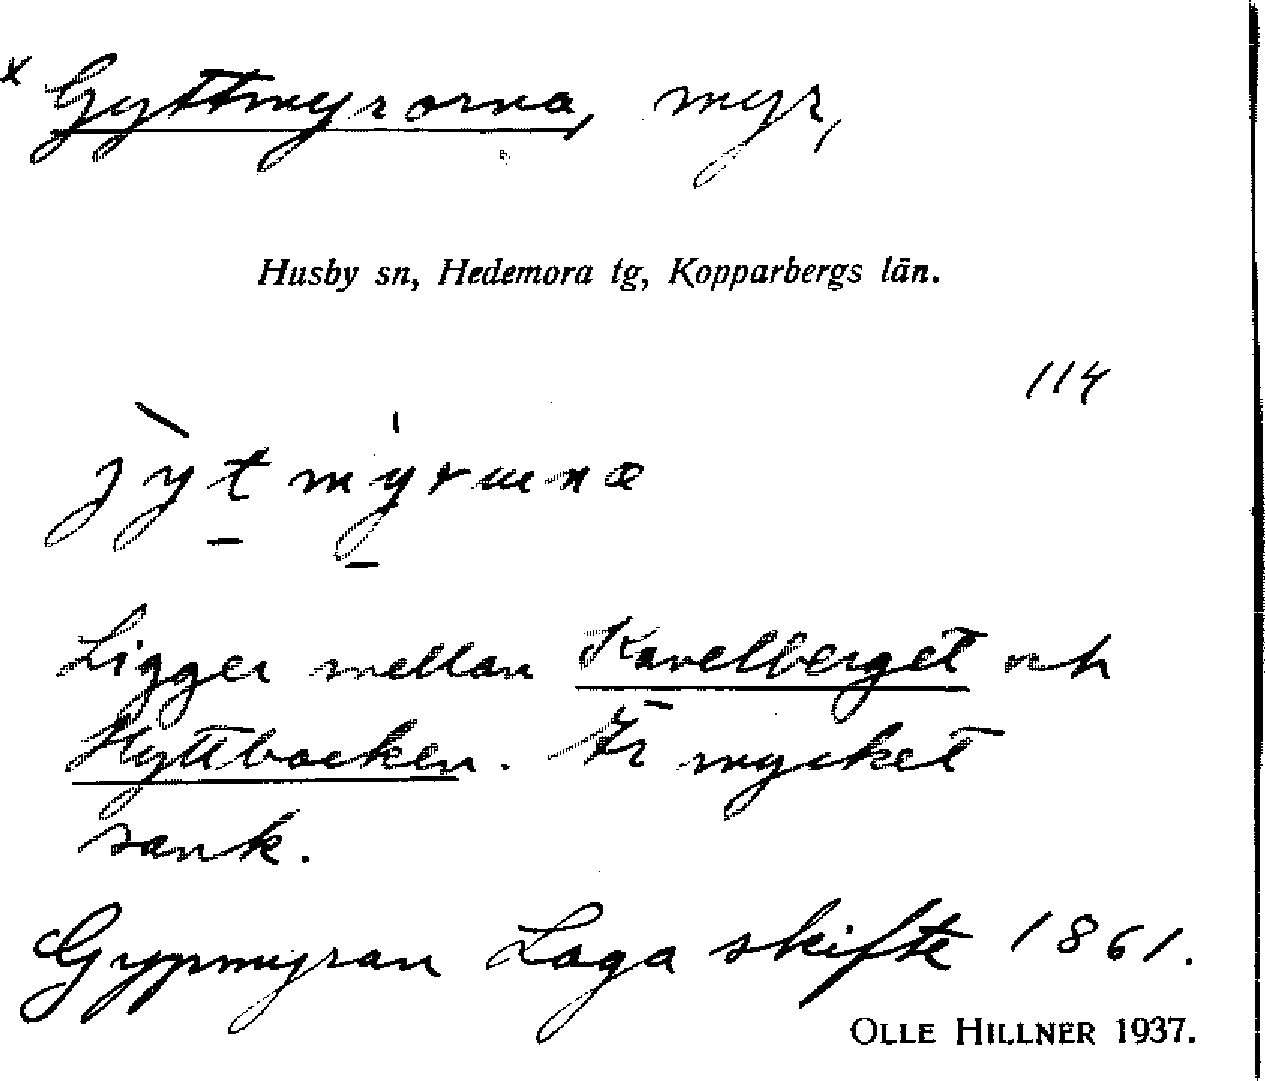 x Gyttmyrorna, myr,
Husby sn, Hedemora tg, Kopparbergs län.
114
jytmyrɯnæ
Ligger mellan Kavelberget och
Hyttbacken. Är mycket
sank.
Gypmyran Laga skifte 1861.
OLLE HILLNER 1937.